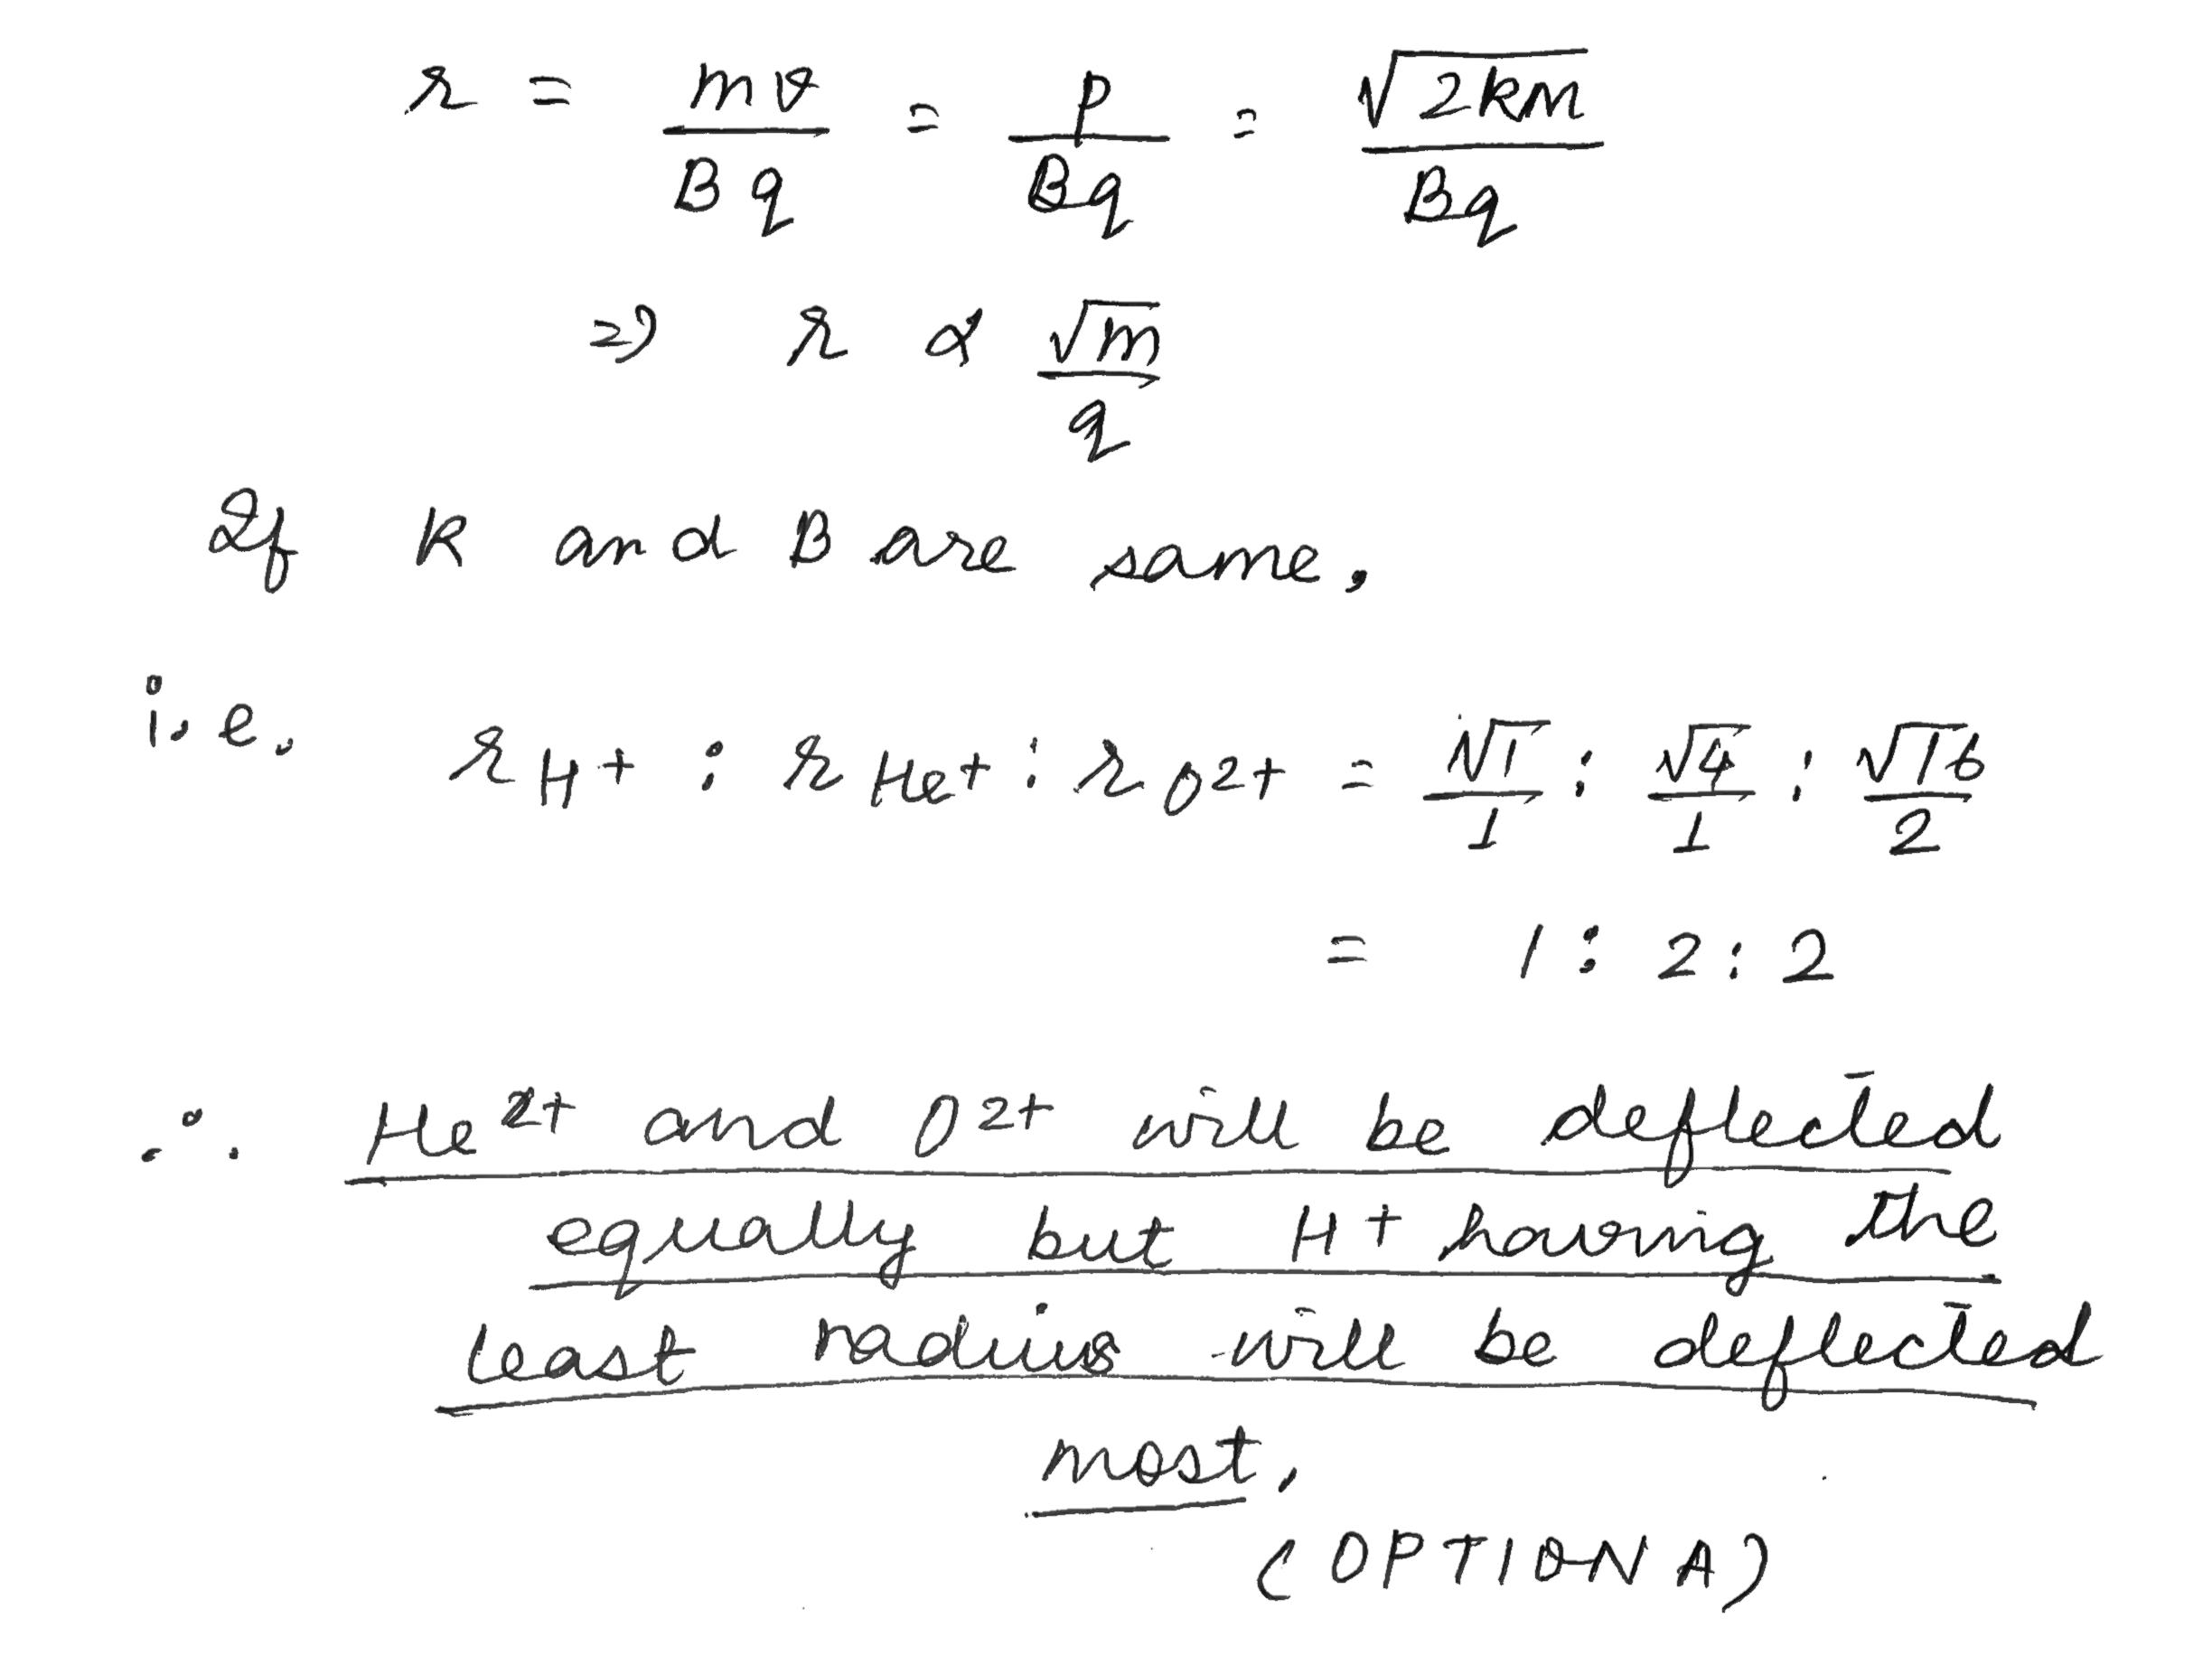 r = mv/Bq = p/Bq = √2km/Bq
⇒ r α √m/q
If K and B are same,
i.e. rH+ : rHe+ : rO2+ = √1/1 : √4/1 : √16/2
= 1 : 2 : 2
∴ He2+ and O2+ will be deflected
equally but H+ having the
least radius will be deflected
most,
(OPTION A)